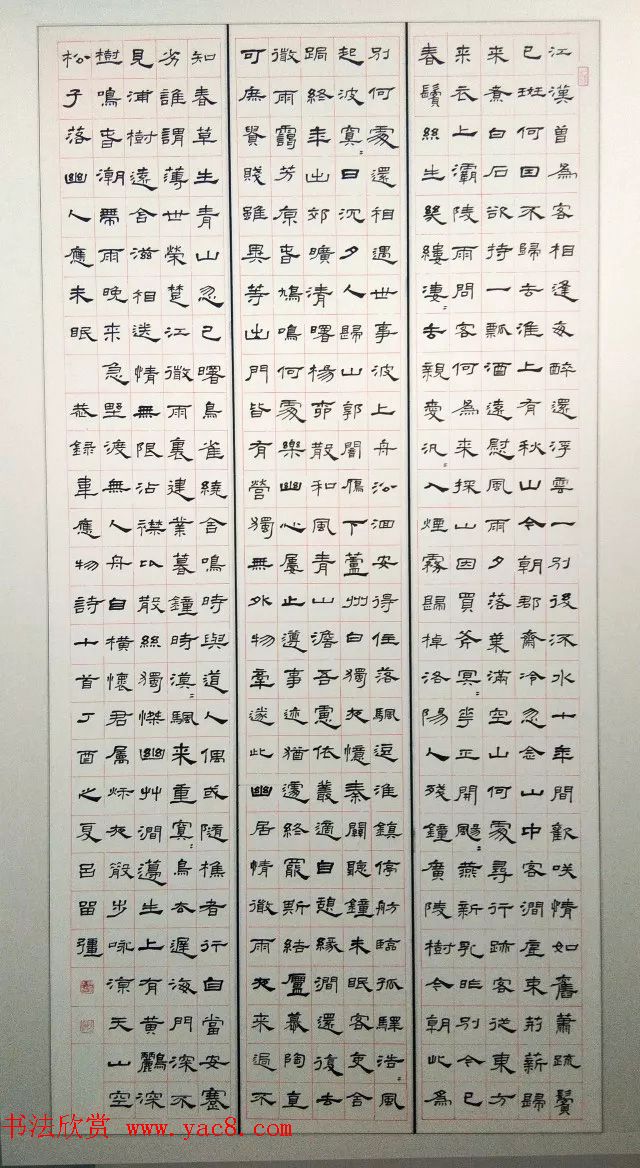 江漢曾為客相逢每醉還浮雲一別後流水十年間歡笑情如舊蕭疏鬢
已斑何因不歸去淮上有秋山今朝郡齋冷忽念山中客澗底束荊薪歸
来煮白石欲持一瓢酒遠慰風雨夕落葉滿空山何處尋行跡客從東方
来衣上灞陵雨問客何為来採山因買斧冥〻花正開颺〻燕新乳昨別今已
春鬢絲生幾縷凄〻去親愛汎〻入煙霧歸棹洛陽人殘鐘廣陵樹今朝此為
別何處還相遇世事波上舟沿洄安得住落帆逗淮鎮停舫臨孤驛浩〻風
起波冥〻日沉夕人歸山郭闇雁下蘆洲白獨夜憶秦關聽鐘未眠客吏舍
跼終年出郊曠清曙楊柳散和風青山澹吾慮依叢適自憩緣澗還復去
微雨靄芳原春鳩鳴何處樂幽心屢止遵事跡猶遽終罷斯結廬慕陶直
可庶貴賤雖異等出門皆有營獨無外物牽遂此幽居情微雨夜来過不
知春草生青山忽已曙鳥雀繞舍鳴時與道人偶或隨樵者行自當安蹇
劣誰謂薄世榮楚江微雨裏建業暮鐘時漠〻帆来重冥〻鳥去遲海門深不
見浦樹遠含滋相送情無限沾襟比散絲獨憐幽艸澗邊生上有黃鸝深
樹鳴春潮帶雨晚来急野渡無人舟自橫懷君屬秋夜散步詠涼天山空
松子落幽人應未眠 恭錄韋應物詩十首丁酉之夏呂留疆
书法欣赏 www.yac8.com